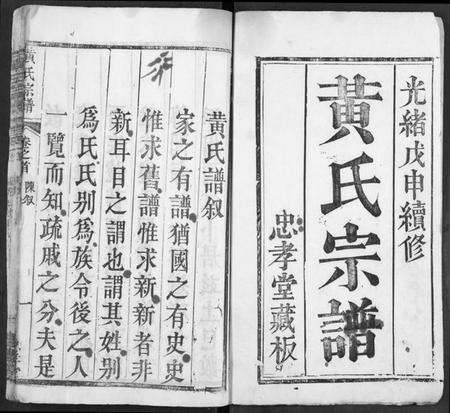 光緒戊申續修
黃氏宗譜
忠孝堂藏板
黃氏譜叙
家之有譜猶國之有史史
惟求舊譜惟求新新者非
新耳目之謂也謂其姓别
爲氏氏别爲族令後之人
一覽而知疏戚之分夫是
黃氏宗譜
卷之首
陳叙